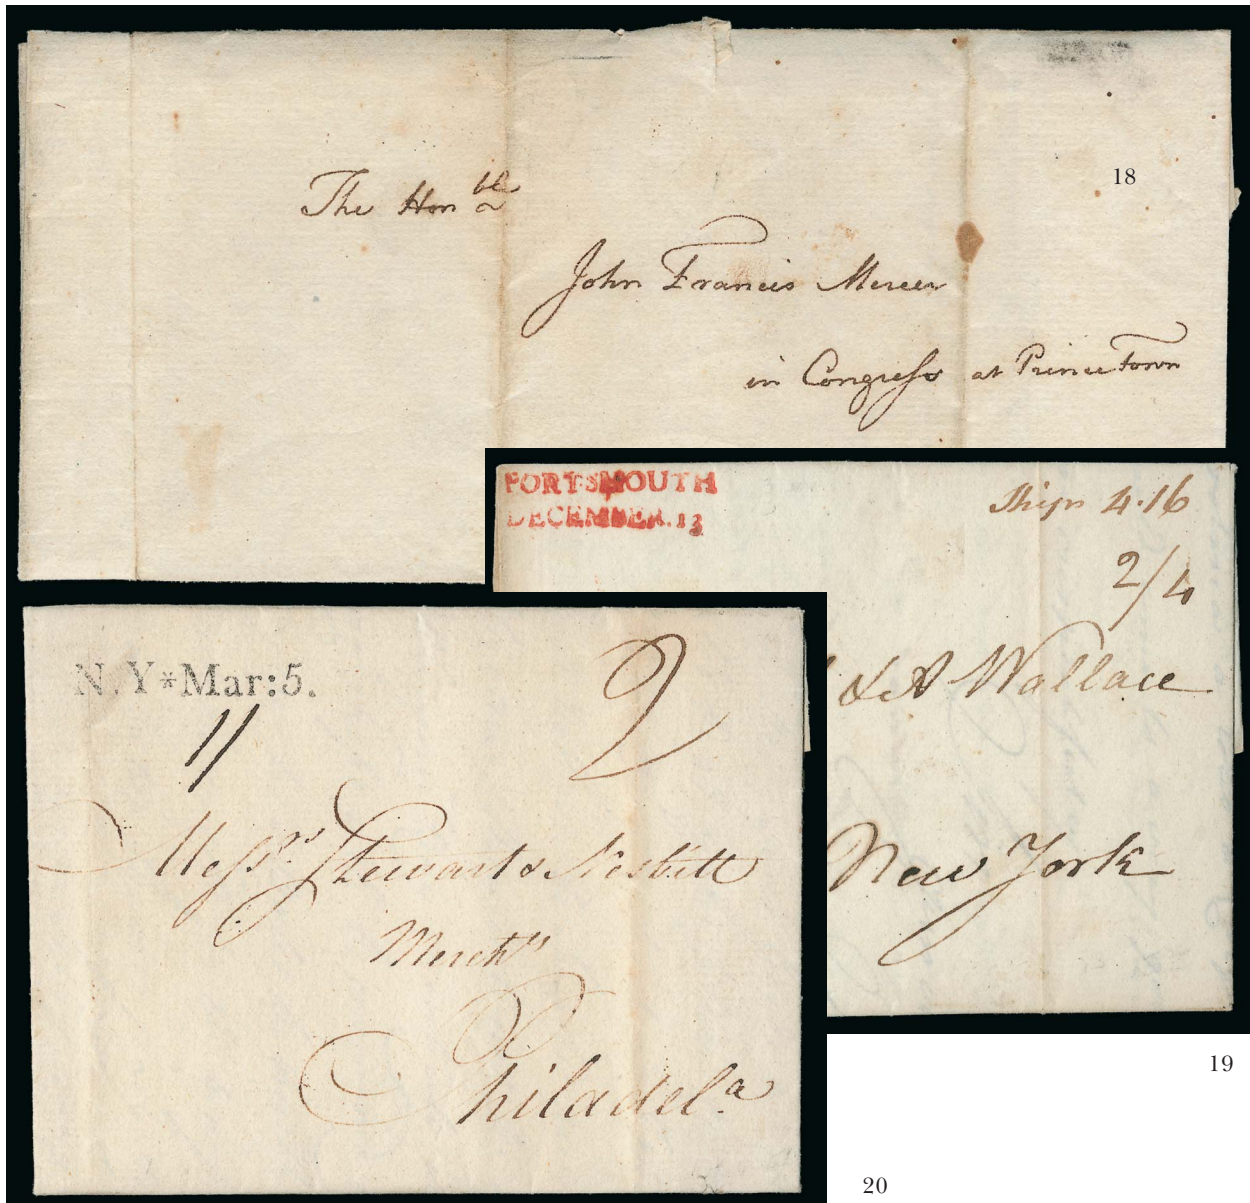 The Honble
John Francis Mercer
in Congress at PrinceTown
18
PORTSMOUTH
DECEMBER.13
Ship 4.16
2/4
& A Wallace
New York
19
N.Y*Mar:5.
11
2
Messrs. Stewart & Nesbitt
Merchts
Philadel.a
20